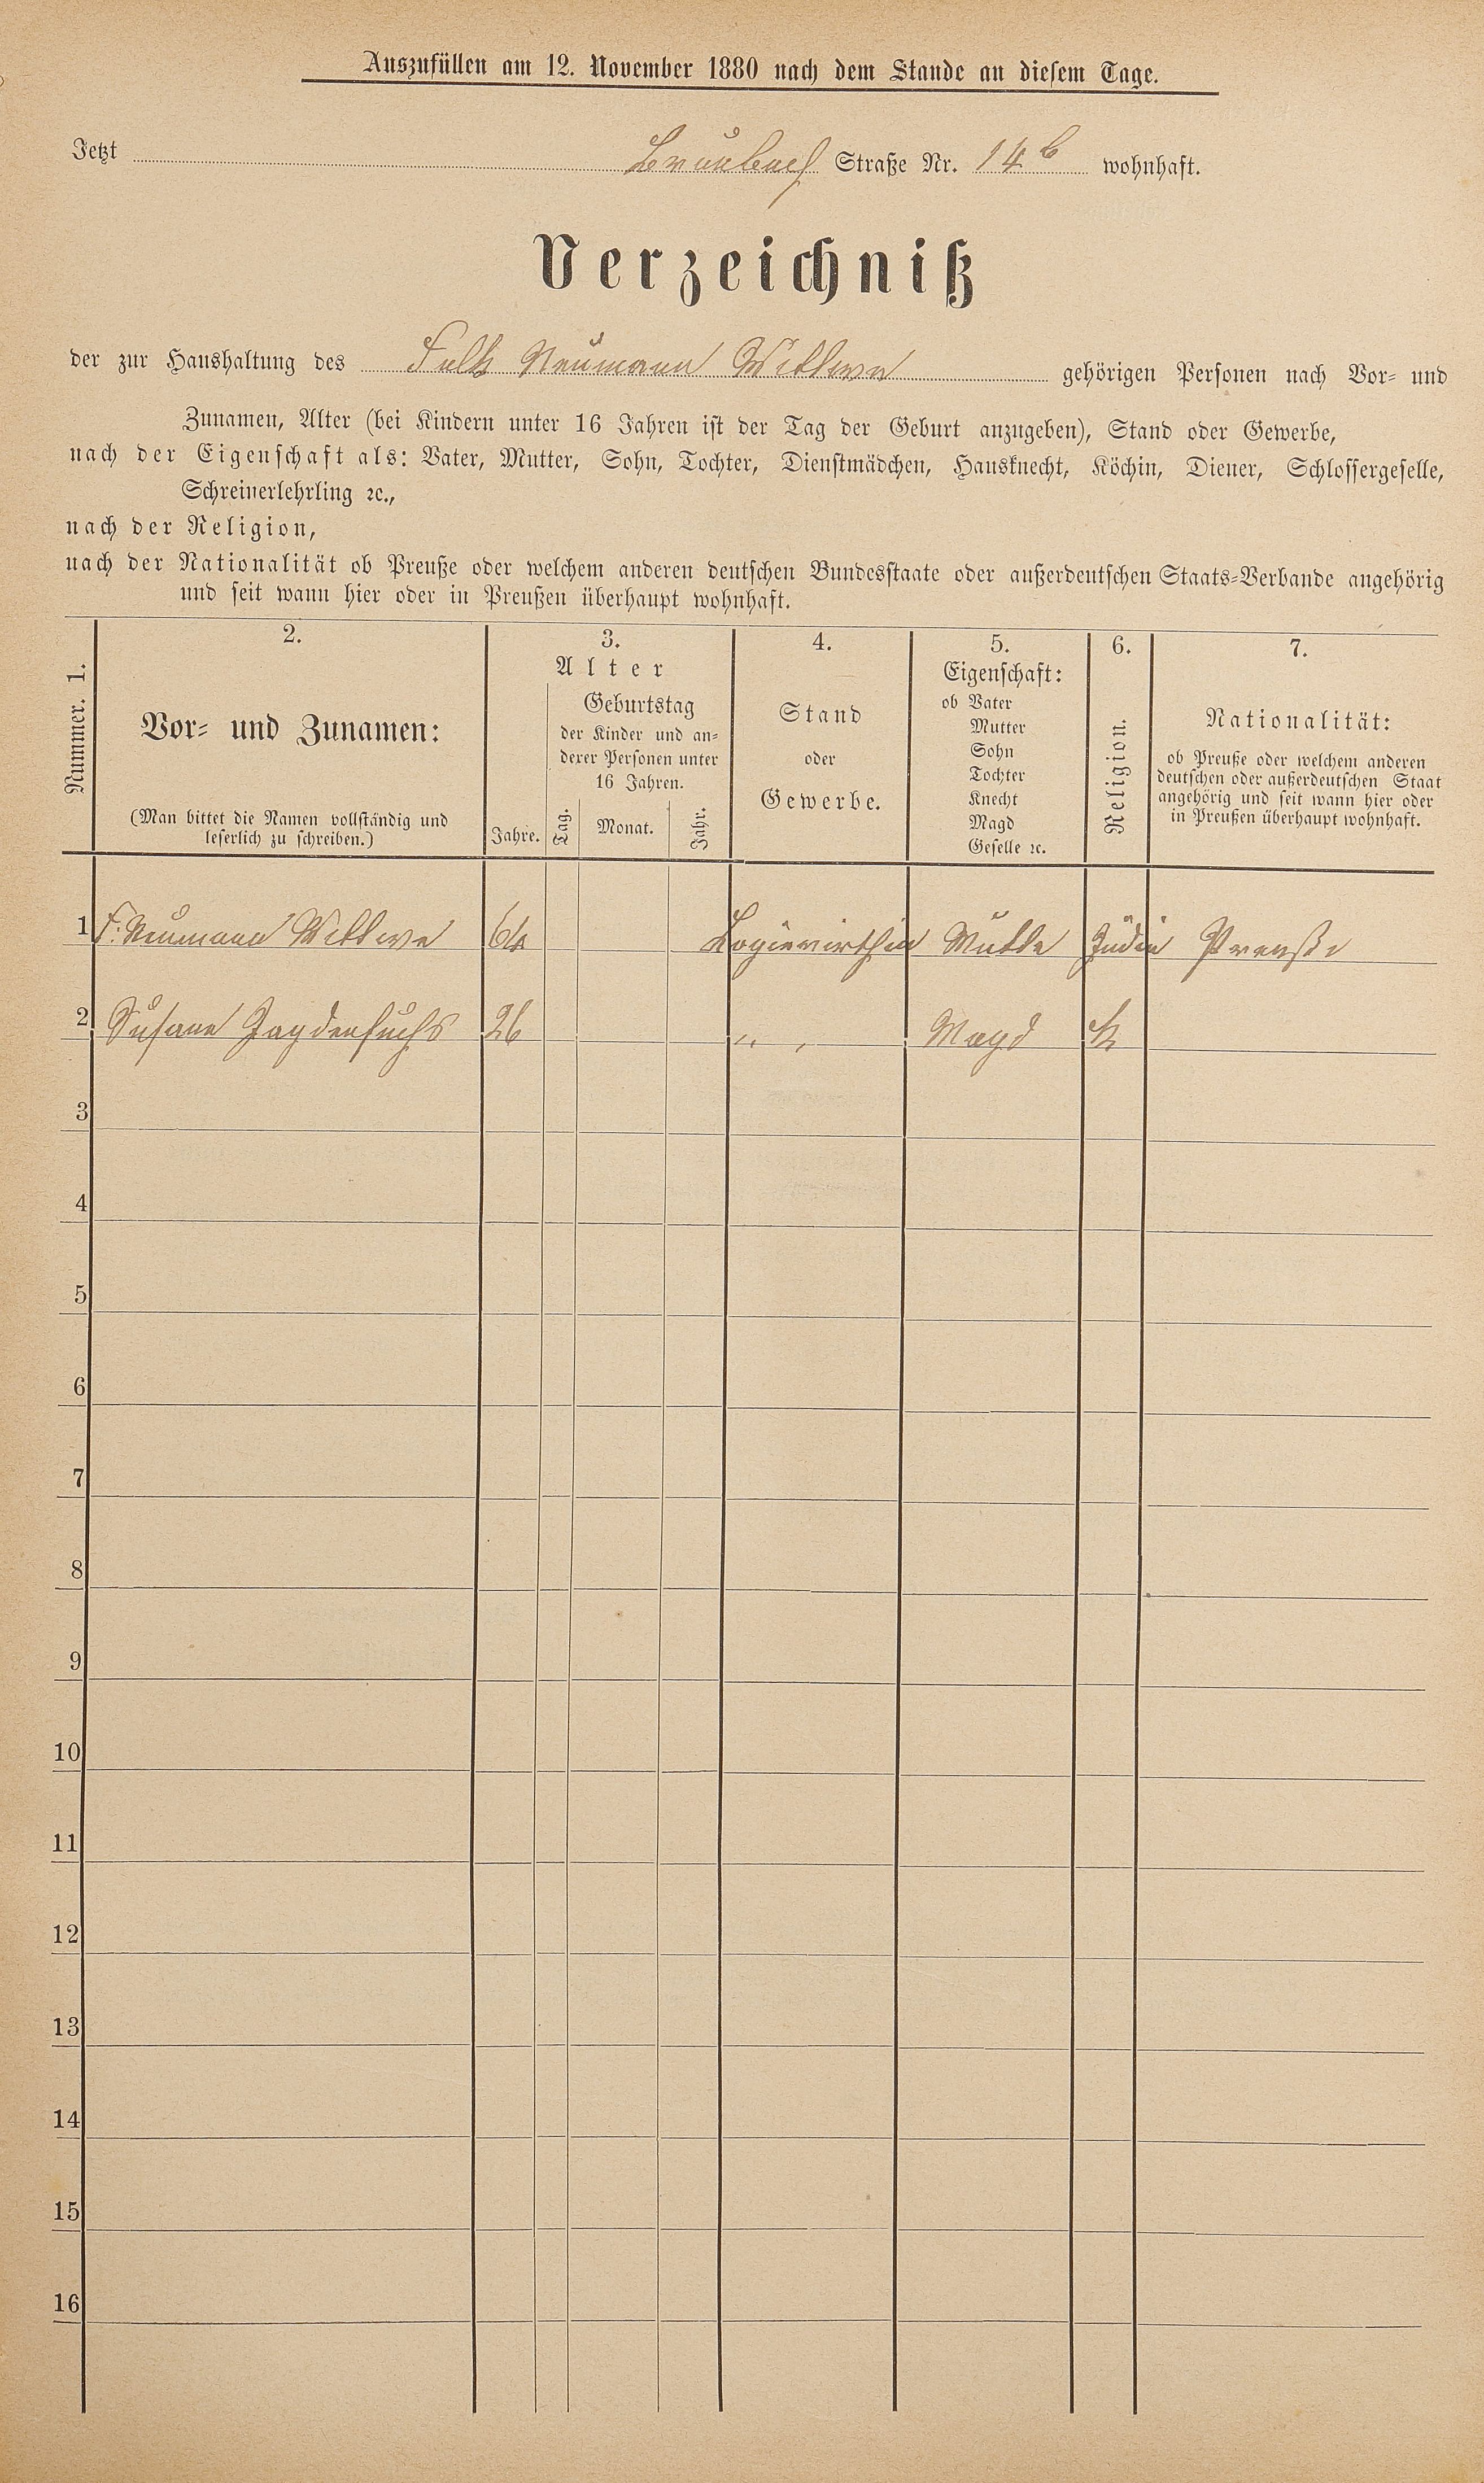 Auszufüllen am 12. November 1880 nach dem Stande an diesem Tage.
Jetzt Braubach Straße Nr. 14b wohnhaft.
Verzeichniß
der zur Haushaltung des Falk Neumann Wittwe gehörigen Personen nach Vor- und
Zunamen, Alter (bei Kindern unter 16 Jahren ist der Tag der Geburt anzugeben), Stand oder Gewerbe,
nach der Eigenschaft als: Vater, Mutter, Sohn, Tochter, Dienstmädchen, Hausknecht, Köchin, Diener, Schlossergeselle,
Schreinerlehrling ꝛc.,
nach der Religion,
nach der Nationalität ob Preuße oder welchem anderen deutschen Bundesstaate oder außerdeutschen Staats-Verbande angehörig
und seit wann hier oder in Preußen überhaupt wohnhaft.
Nummer. 1.
2.
Vor- und Zunamen:
(Man bittet die Namen vollständig und
leserlich zu schreiben.)
3.
Alter
Jahre.
Geburtstag
der Kinder und an-
derer Personen unter
16 Jahren.
Tag.
Monat.
Jahr.
4.
Stand
oder
Gewerbe.
5.
Eigenschaft:
ob Vater
Mutter
Sohn
Tochter
Knecht
Magd
Geselle ꝛc.
6.
Religion.
7.
Nationalität:
ob Preuße oder welchem anderen
deutschen oder außerdeutschen Staat
angehörig und seit wann hier oder
in Preußen überhaupt wohnhaft.
1 F: Neumann Wittwe 64 Logiewirthin Mutter Jüdin Preuße
2 Susane 26 " " Magd K
3
4
5
6
7
8
9
10
11
12
13
14
15
16